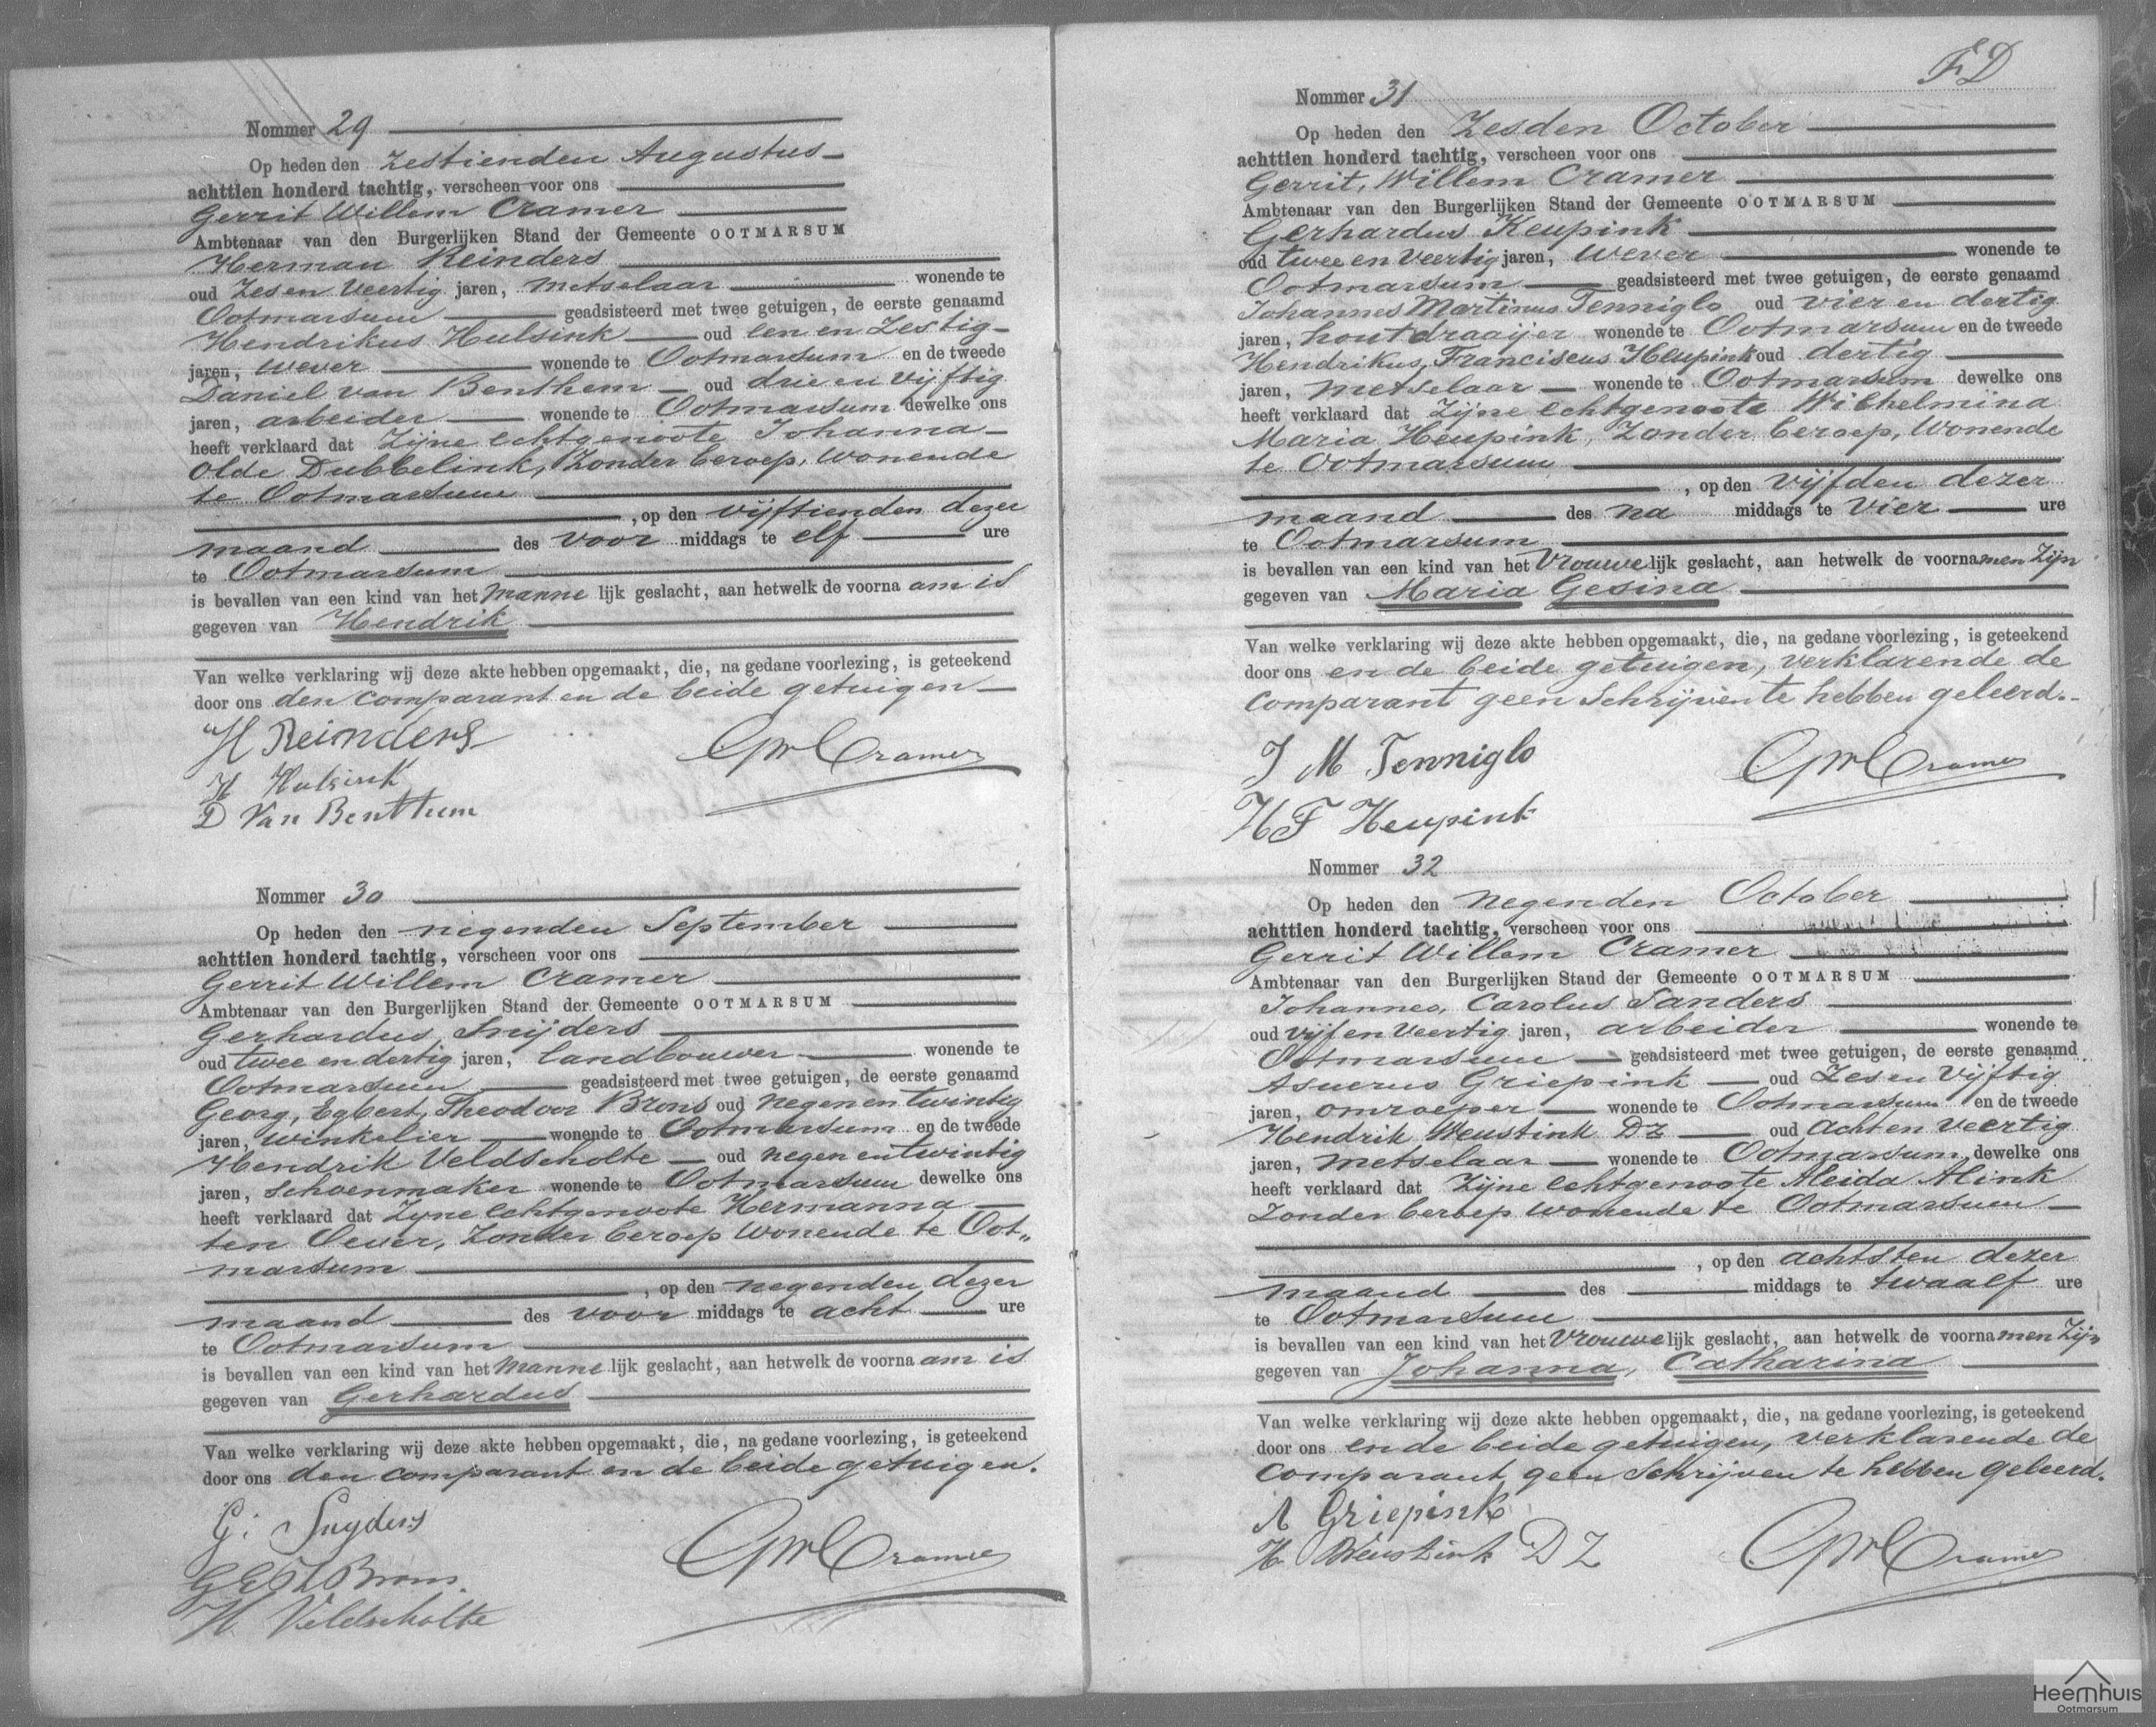 Nommer 29
Op heden den Zestienden Augustus
achttien honderd tachtig, verscheen voor ons
Gerrit Willem Cramer
Ambtenaar van den Burgerlijken Stand der Gemeente OOTMARSUM
Herman Reinders
oud Zes en Veertig jaren, metselaar wonende te
Ootmarsum geadsisteerd met twee getuigen, de eerste genaamd
Hendrikus Hulsink oud een en Zestig
jaren, wever wonende te Ootmarsum en de tweede
Daniel van Benthem oud drie en Vijftig
jaren, arbeider wonende te Ootmarsum dewelke ons
heeft verklaard dat Zijne echtgenoote Johanna
Olde Dubbelink, Zonder beroep, wonende
te Ootmarsum
, op den vijftienden dezer
maand des voor middags te elf ure
te Ootmarsum
is bevallen van een kind van het manne lijk geslacht, aan hetwelk de voorna am is
gegeven van Hendrik
Van welke verklaring wij deze akte hebben opgemaakt, die, na gedane voorlezing, is geteekend
door ons den comparant en de beide getuigen
H Reinders
GW Cramer
H Hulsink
D Van Benthem
Nommer 30
Op heden den negenden September
achttien honderd tachtig, verscheen voor ons
Gerrit Willem Cramer
Ambtenaar van den Burgerlijken Stand der Gemeente OOTMARSUM
Gerhardus Snijders
oud twee en dertig jaren, landbouwer wonende te
Ootmarsum geadsisteerd met twee getuigen, de eerste genaamd
Georg, Egbert, Theodoor Brons oud negen en twintig
jaren, winkelier wonende te Ootmarsum en de tweede
Hendrik Veldscholte oud negen en twintig
jaren, schoenmaker wonende te Ootmarsum dewelke ons
heeft verklaard dat Zijne echtgenoote Hermanna
ten Oever, Zonder beroep wonende te Oot„
marsum
, op den negenden dezer
maand des voor middags te acht ure
te Ootmarsum
is bevallen van een kind van het manne lijk geslacht, aan hetwelk de voorna am is
gegeven van Gerhardus
Van welke verklaring wij deze akte hebben opgemaakt, die, na gedane voorlezing, is geteekend
door ons den comparant en de beide getuigen.
G: Snyders
GW Cramer
G E Th Brons.
H Veldscholte
FD
Nommer 31
Op heden den Zesden October
achttien honderd tachtig, verscheen voor ons
Gerrit, Willem Cramer
Ambtenaar van den Burgerlijken Stand der Gemeente OOTMARSUM
Gerhardus Keupink
oud twee en Veertig jaren, wever wonende te
Ootmarsum geadsisteerd met twee getuigen, de eerste genaamd
Johannes Martinus Tenniglo oud vier en dertig
jaren, houtdraaijer wonende te Ootmarsum en de tweede
Hendrikus, Franciscus Heupink oud dertig
jaren, metselaar wonende te Ootmarsum dewelke ons
heeft verklaard dat Zijne echtgenoote Wilhelmina
Maria Heupink, Zonder beroep, wonende
te Ootmarsum
, op den vijfden dezer
maand des na middags te vier ure
te Ootmarsum
is bevallen van een kind van het Vrouwe lijk geslacht, aan hetwelk de voorna men Zijn
gegeven van Maria Gesina
Van welke verklaring wij deze akte hebben opgemaakt, die, na gedane voorlezing, is geteekend
door ons en de beide getuigen, verklarende de
comparant geen Schrijven te hebben geleerd.
J M Tenniglo
GW Cramer
H F Heupink
Nommer 32
Op heden den negenden October
achttien honderd tachtig, verscheen voor ons
Gerrit Willem Cramer
Ambtenaar van den Burgerlijken Stand der Gemeente OOTMARSUM
Johannes, Carolus Sanders
oud vijf en Veertig jaren, arbeider wonende te
Ootmarsum geadsisteerd met twee getuigen, de eerste genaamd
Asuerus Griepink oud Zes en Vijftig
jaren, omroeper wonende te Ootmarsum en de tweede
Hendrik Weustink DZ oud acht en Veertig
jaren, metselaar wonende te Ootmarsum, dewelke ons
heeft verklaard dat Zijne echtgenoote Aleida Alink
Zonder beroep wonende te Ootmarsum
, op den achtsten dezer
maand des middags te twaalf ure
te Ootmarsum
is bevallen van een kind van het Vrouwe lijk geslacht, aan hetwelk de voorna men Zijn
gegeven van Johanna, Catharina
Van welke verklaring wij deze akte hebben opgemaakt, die, na gedane voorlezing, is geteekend
door ons en de beide getuigen, verklarende de
comparant, geen Schrijven te hebben geleerd.
A Griepink
GW Cramer
H Weustink DZ
Heemhuis
Ootmarsum